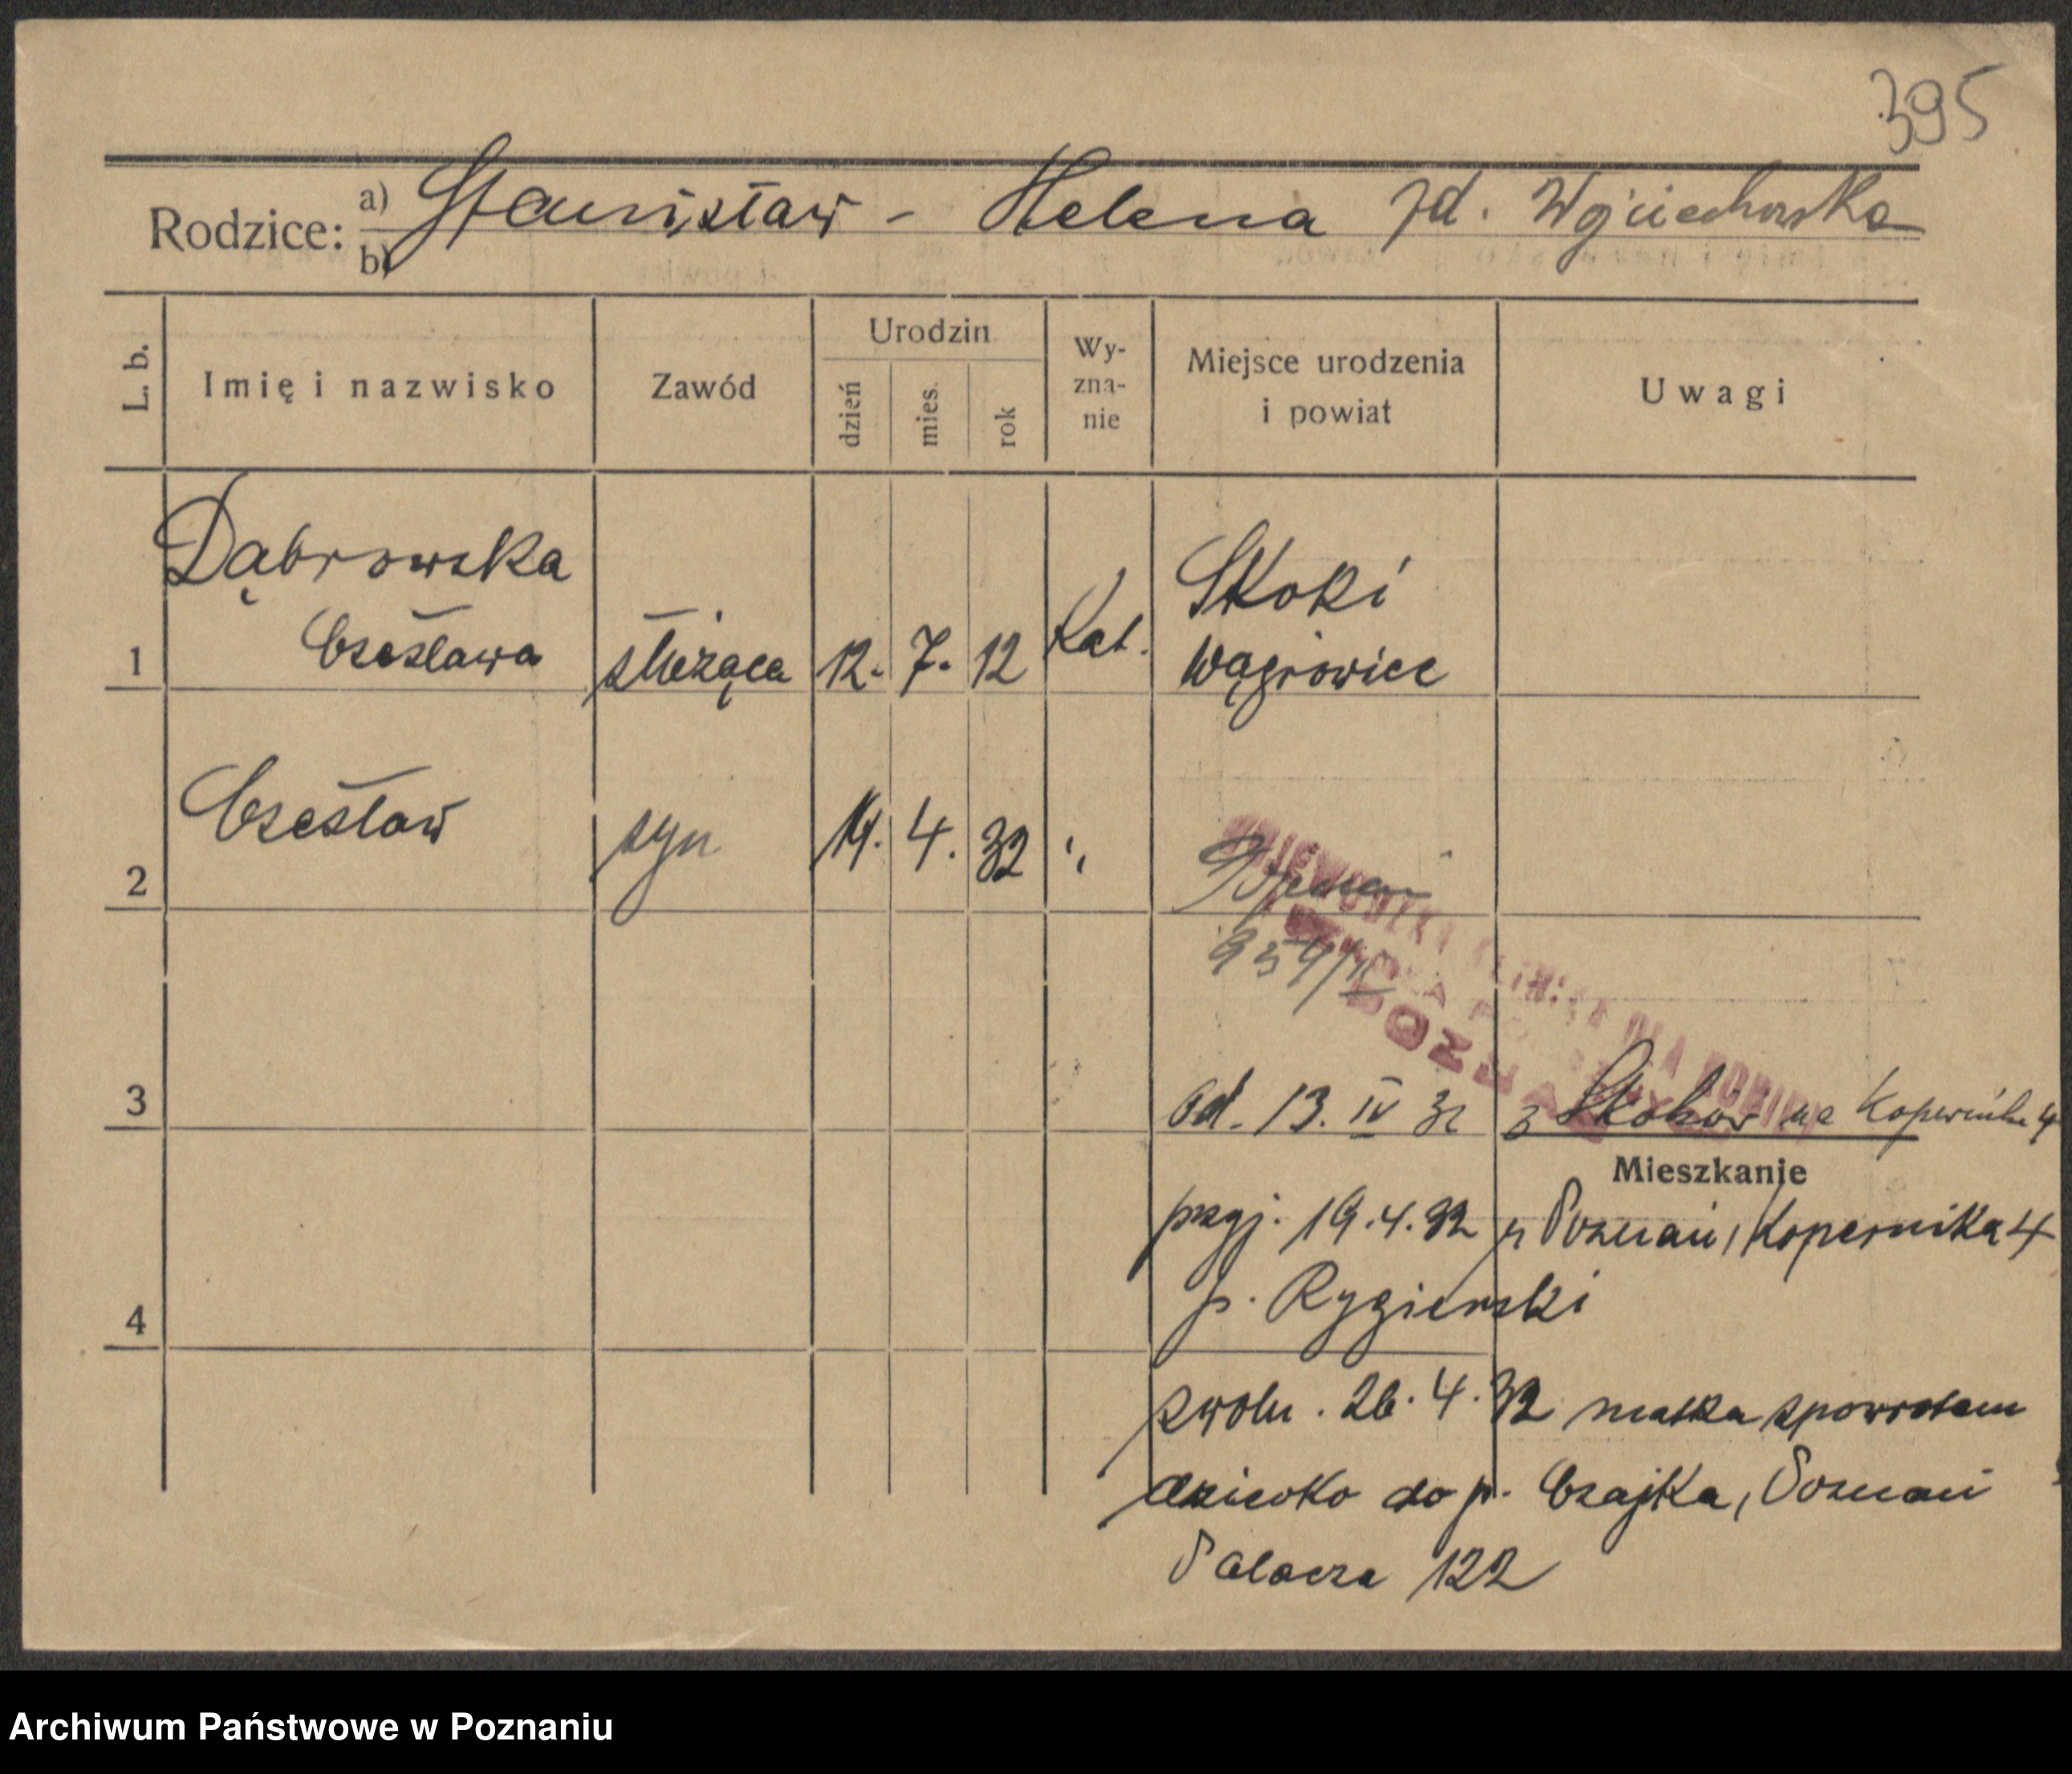 395
Rodzice: a) Stanisław - Helena zd. Wojciechowska
b)
L. b. Imię i nazwisko Zawód Urodzin dzień mies. rok Wy-zna-nie Miejsce urodzenia i powiat Uwagi
Dąbrowska Skoki
1 Czesława służąca 12. 7. 12 Kat. Wągrowiec
2 Czesław syn 14. 4. 32 "
POZNAŃ
3 od. 13. IV 32 z Skoków na Kopernika 4
Mieszkanie
przyj. 19.4.32 Poznań, Kopernika 4
4 p. Rygierski
zwoln. 26. 4. 32 matka spowrotem
dziecko do p. Czajka, Poznań
Palacza 122
Archiwum Państwowe w Poznaniu